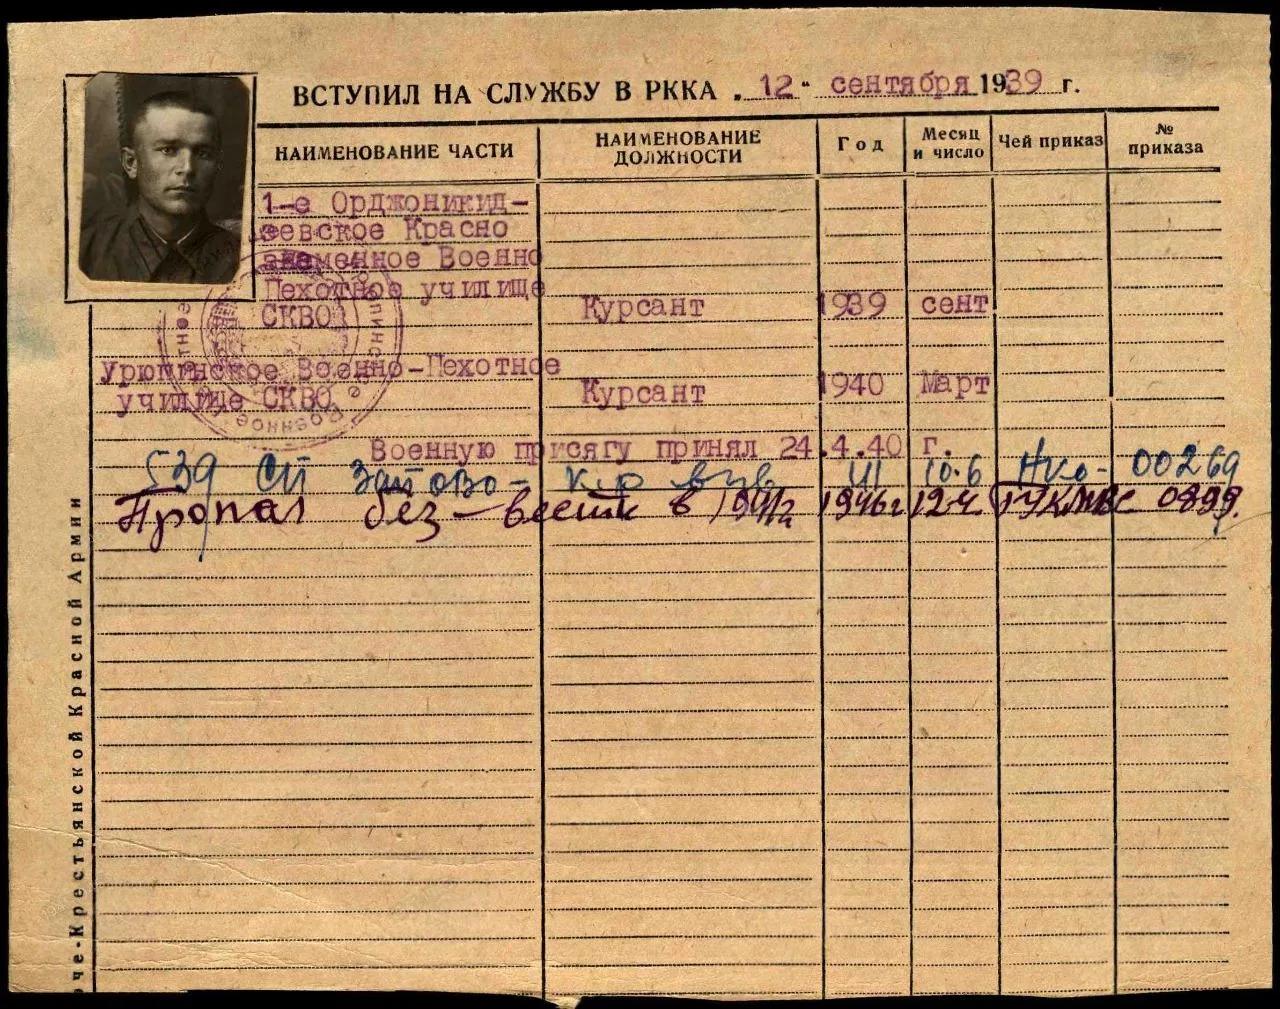 ВСТУПИЛ НА СЛУЖБУ В РККА „12" сентября 1939 г.
НАИМЕНОВАНИЕ ЧАСТИ НАИМЕНОВАНИЕ ДОЛЖНОСТИ Год Месяц и число Чей приказ № приказа
1-е Орджоникид-
зевское Красно
знаменное Военно
Пехотное училище
СКВО Курсант 1939 сент
Урюпинское Военно-Пехотное
училище СКВО Курсант 1940 Март
Военную присягу принял 24.4.40 г.
539 СП ЗапОВО - к-р взв. 41 10.6 НКО - 00269
Пропал без вести в 1941г 1946г 12.4 ГУК МВС 0899.
че-Крестьянской Красной Армии